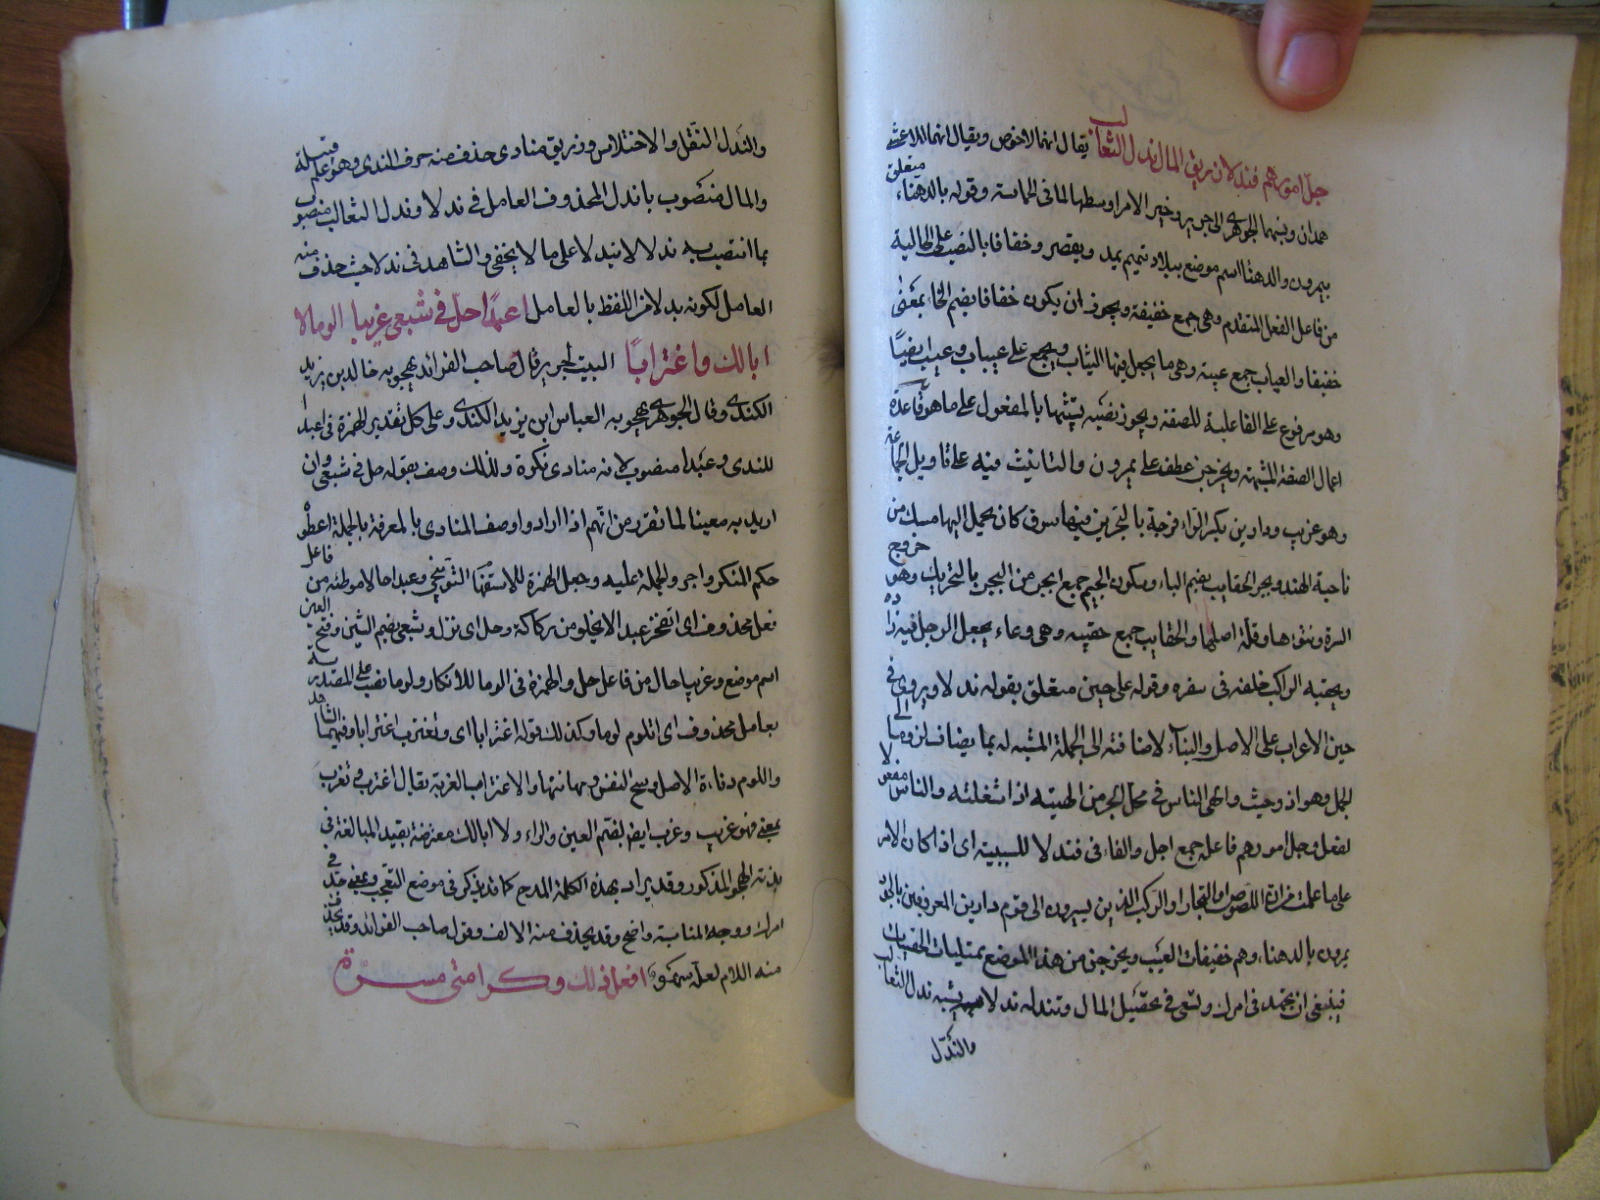 جل امورهم فندلا زريق المال ندل الثعالب يقال انهما للاخوص ويقال انهما لاعشى
همدان ونسبهما الجوهرى الى جرير وخير الامر اوسطها لما فى الحماسة وقوله بالدهناء متعلق
بيمرون والدهنا اسم موضع ببلاد تميم يمد ويقصر وخفافا بالنصب على الحالية
من فاعل الفعل المتقدم وهى جمع خفيفة ويجوز ان يكون خفافا بضم الخاء بمعنى
خفيفا والعياب جمع عيبة وهى ما يجعل فيها الثياب ويجمع على عيبات وعيب ايضا
وهو مرفوع على الفاعلية للصفة ويجوز نصبه تشبيها بالمفعول على ما هو قاعدة
اعمال الصفة المشبهة ويخرجن عطف على يمرون والتانيث فيه على تاويل الجماعة
وهو غريب ودارين بكسر الراء فرجة بالبحرين فيها سوق كان يحمل اليها مسك من
ناحية الهند وبجر الحقايب بضم الباء وسكون الجيم جمع ابجر من البجر بالتحريك وهو خروج
السرة ونتوءها وقلة اصلها والحقايب جمع حقيبه وهى وعاء يجعل الرجل فيه زاده
ويحقبه الراكب خلفه فى سفره وقوله على حين متعلق بقوله ندلا ويروى فى
حين الاعراب على الاصل والبناء لاضافته الى الجملة المشبه له بما يضاف لزوما الى
الجمل وهو اذ وحيث والهى الناس فى محل الجر من الهيته اذا شغلته والناس مفعولا
لفعل وجل امورهم فاعله جمع اجل والفاء فى فندلا للسببية اى اذا كان الامر
على ما علمت من ان اللصوص او التجار او الركب الذين يسيرون الى قوم دارين المعروفين بالجود
يمرون بالدهناء وهم خفيفات العيب ويخرجن من هذا الموضع بمتليات الحقيبات
فينبغى ان تجتهد فى امرك وتسعى فى تحصيل المال وتندله ندلا يشبه ندل الثعالب
والندل
والندل النقل والاختلاس وزريق منادى حذف منه حرف الندى وهو علم قبيلة
والمال منصوب باندل المحذوف العامل فى ندلا وندل الثعالب منصوب
بما انتصب به ندلا لانه بدلا على ما لا يخفى والشاهد فى ندلا حيث حذف منه
العامل لكونه بدلا من اللفظ بالعامل اعبدا حل فى شعبى غريبا الوما لا
ابا لك واغترابا البيت لجرير قال صاحب الفرائد يهجو به خالد بن يزيد
الكندى وقال الجوهرى يهجو به العباس ابن يزيد الكندى وعلى كل تقدير الهمزة فى اعبدا
للندى وعبدا منصوب لانه منادى نكرة ولذلك وصف بقوله حل فى شعبى وان
اريد به معينا لما تقرر من انهم اذا ارادوا وصف المنادى بالمعرفة بالجملة اعطوه
حكم المنكر واجروا الجملة عليه وجعل الهمزة للاستفهام التوبيخى وعبدا حالا موطئه من فاعل
فعل محذوف اى اتفخر عبدا لا يخلو من ركاكة وحل اى نزل وشعبى بضم الشين وفتح العين
اسم موضع وغريبا حال من فاعل حل والهمزة فى الوما للانكار ولوما نصب على المصدرية
بعامل محذوف اى اتلوم لوما وكذلك قوله اغترابا اى وتغترب اغترابا وفيهما الشاهد
واللوم دناءة الاصل وشح النفس ومهانتها والاغتراب الغربة يقال اغترب وتغرب
بمعنى فهو غريب وغرب ايضا بضم العين والراء ولا ابا لك معترضة يفيد المبالغة فى
الهجو المذكور وقد يراد بهذه الكلمة المدح كما قد يذكر فى موضع التعجب وبمعنى جد فى
امرك ووجه المناسبة واضح وقد يحذف منه الالف وقول صاحب الفرائد وقد يحذف
منه اللام لعله سهو افعل ذلك وكرامتى مسرة